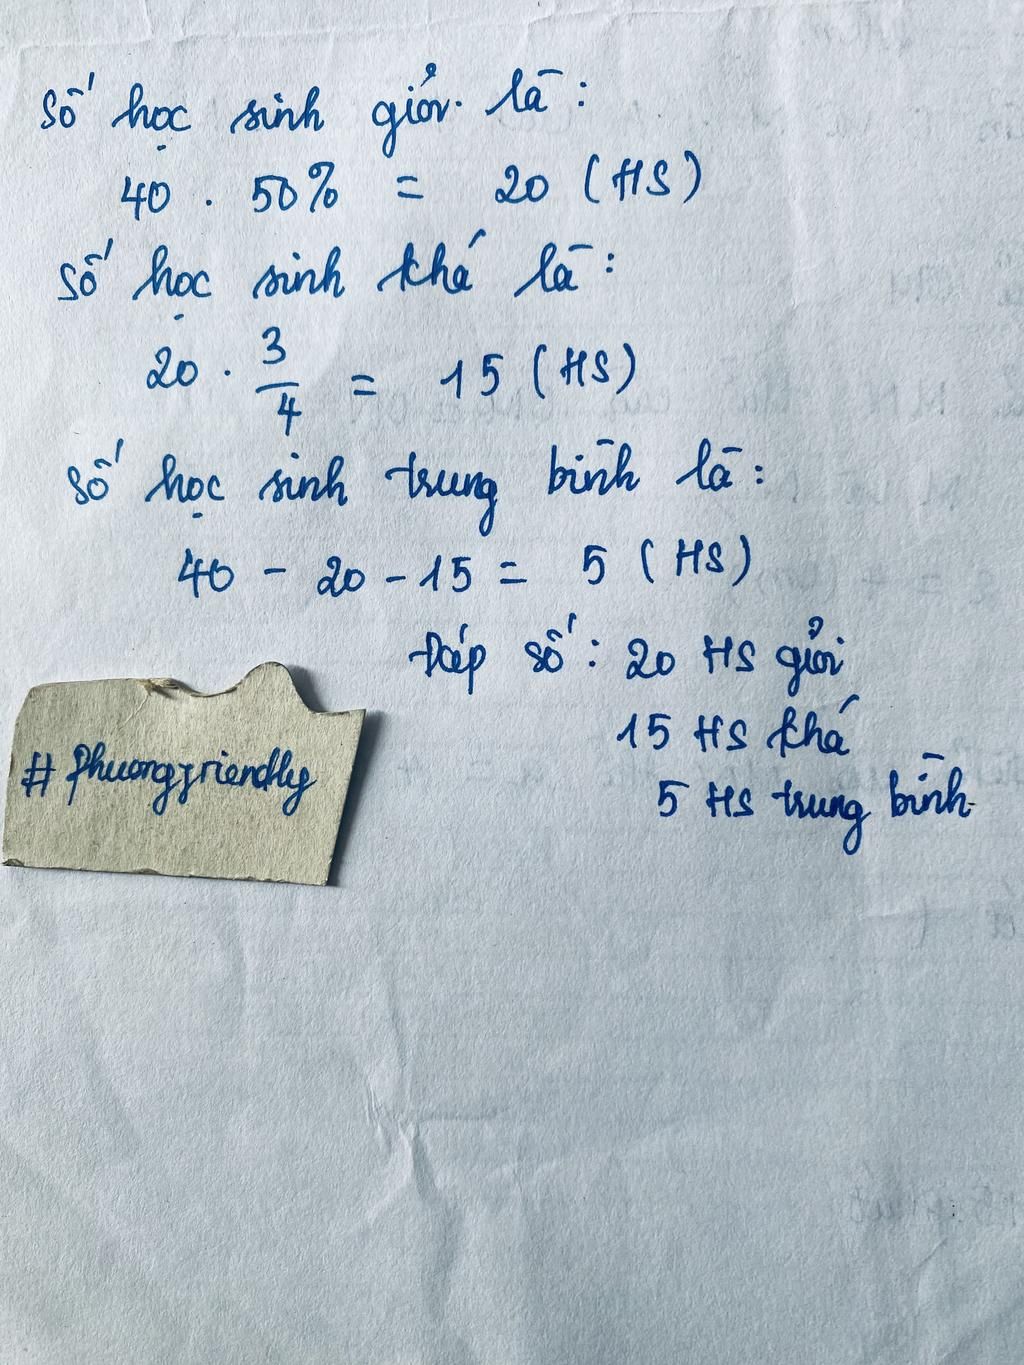 Số học sinh giỏi là:
40 . 50% = 20 (HS)
Số học sinh khá là:
20 . 3/4 = 15 (HS)
Số học sinh trung bình là:
40 - 20 - 15 = 5 (HS)
Đáp số: 20 HS giỏi
15 HS khá
5 HS trung bình
# Phuongfriendly